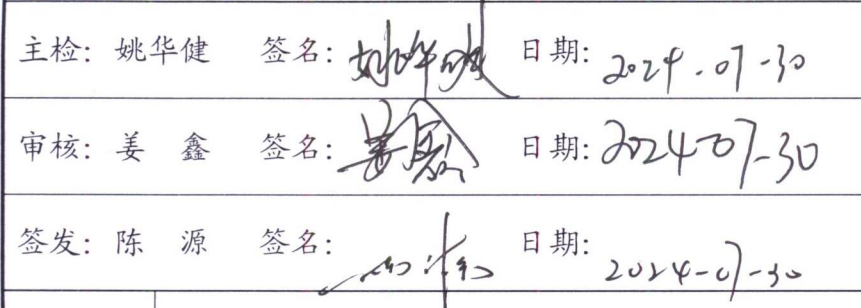 主检：姚华健 签名：姚华健 日期：2024.07-30
审核：姜 鑫 签名：姜鑫 日期：2024-07-30
签发：陈 源 签名： 日期：2024-07-30